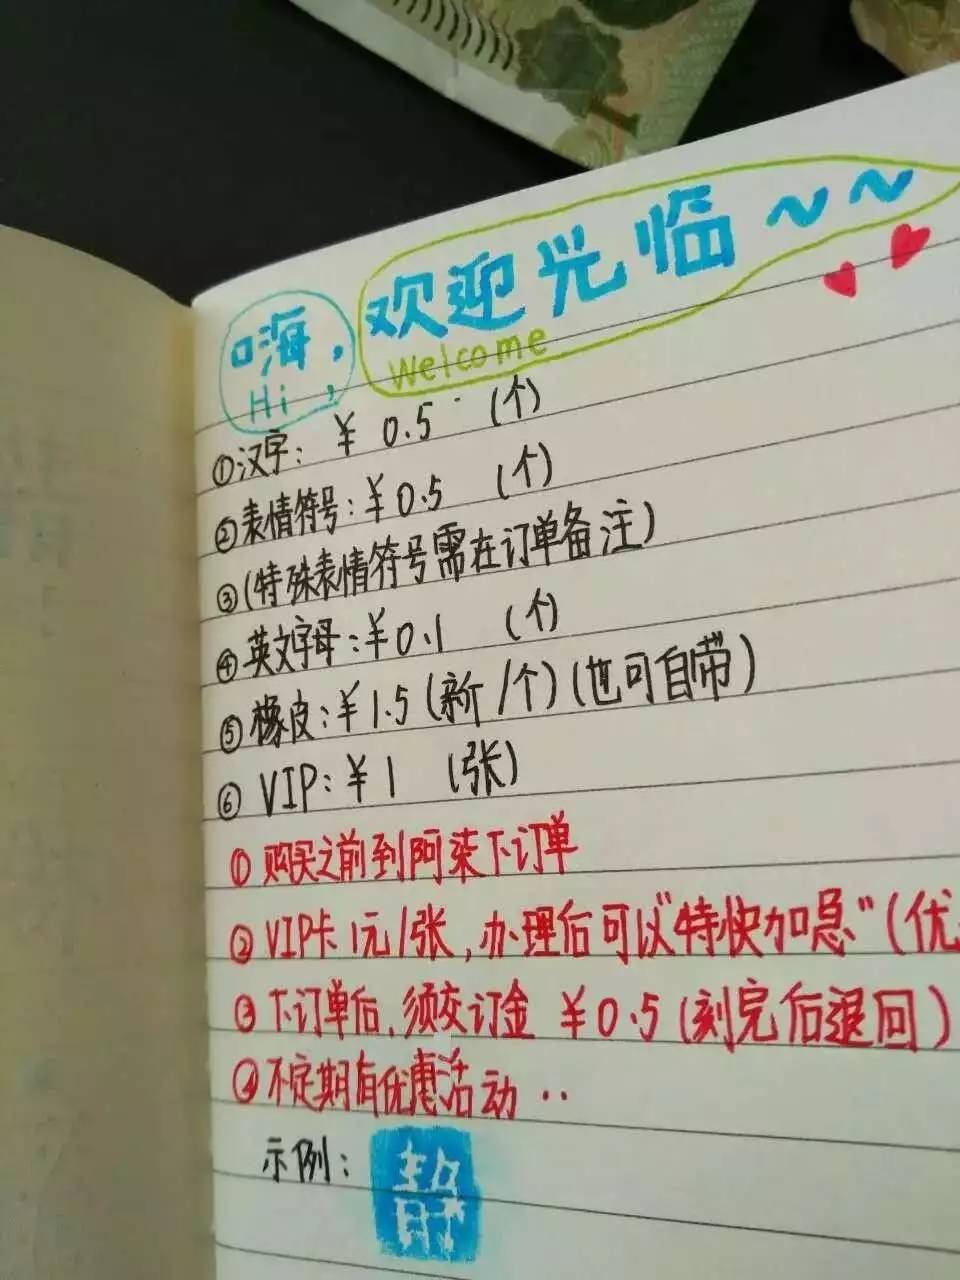 嗨，欢迎光临~~
Hi, Welcome
①汉字：￥0.5 (个)
②表情符号：￥0.5 (个)
③(特殊表情符号需在订单备注)
④英文字母：￥0.1 (个)
⑤橡皮：￥1.5(新/个)(也可自带)
⑥VIP：￥1 (张)
①购买之前到阿柒下订单
②VIP卡1元/张，办理后可以"特快加急"(优
③下订单后，须交订金￥0.5(刻完后退回)
④不定期有优惠活动··
示例：